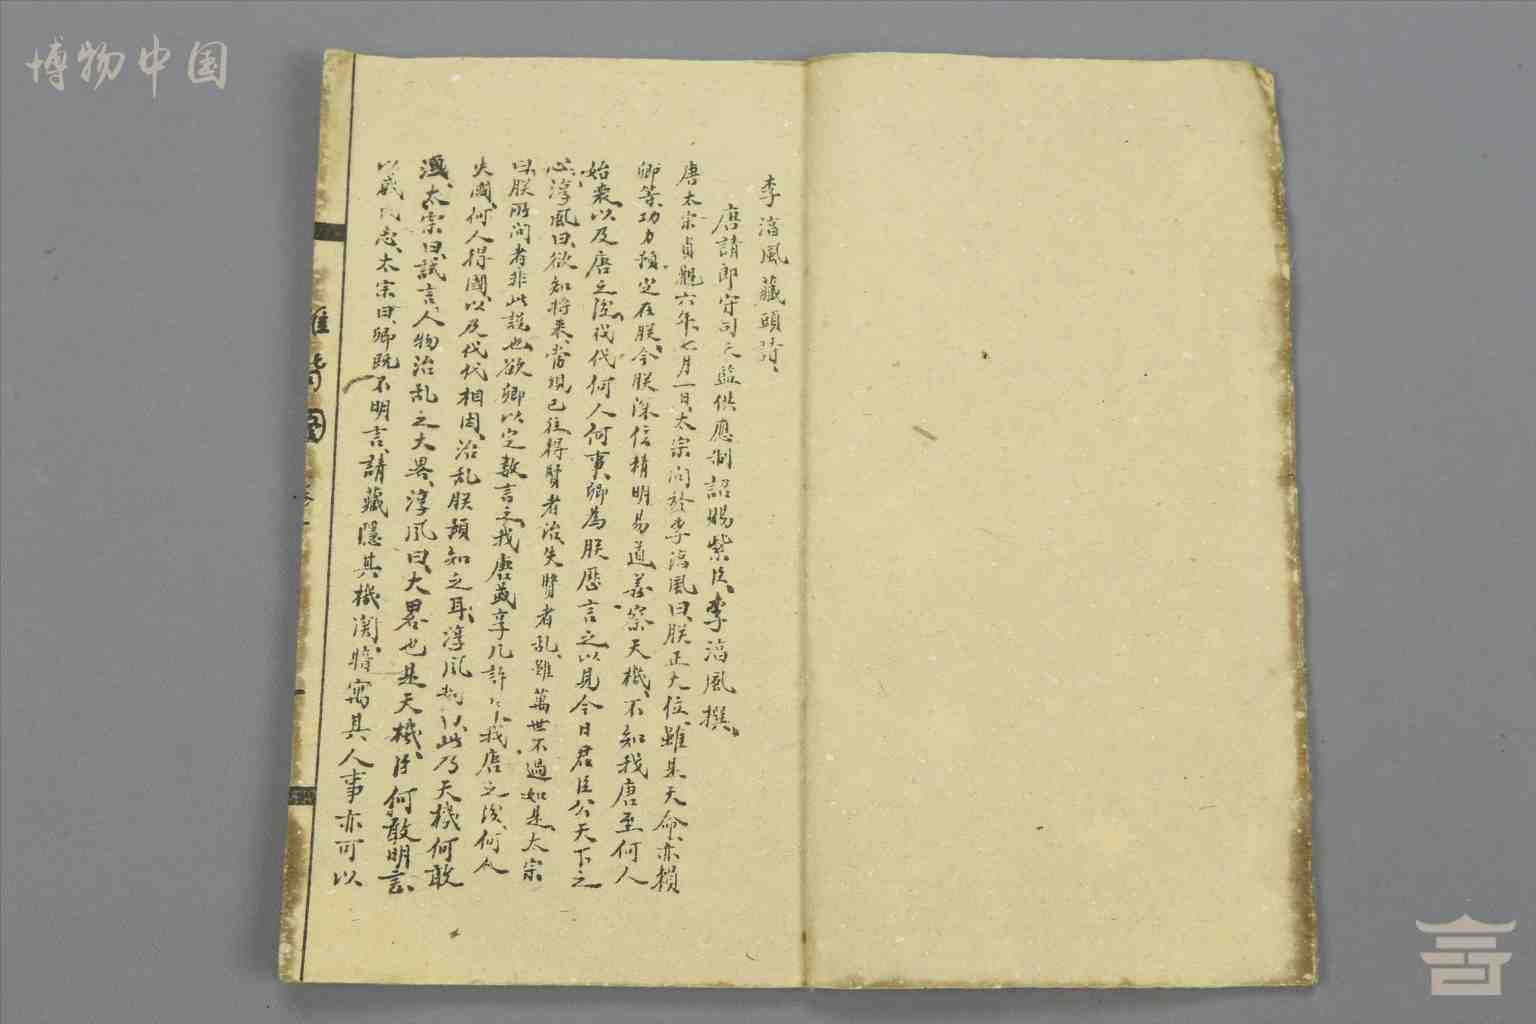 博物中国
李淳風藏頭詩
唐請郎守司天監供應制詔賜紫臣李淳風撰
唐太宗貞觀六年七月一日太宗问於李淳風曰朕正大位雖是天命亦賴
卿等功力預定在朕今朕深信精明易道善察天機不知我唐至何人
始衰以及唐之後代代何人何事卿為朕歷言之以見今日君臣公天下之
心淳風曰欲知將来當观已往得賢者治失賢者乱雖萬世不過如是太宗
曰朕所问者非此說也欲卿以定数言之我唐盛享凡許年我唐之後何人
失國何人得國以及代代相因治乱朕預知之耳淳風對曰此乃天機何敢
洩太宗曰試言人物治乱之大畧淳风曰大畧也是天機臣何敢明言
以惑民志太宗曰卿既不明言請藏隱其機関暗寓其人事亦可以
推背圖
卷一